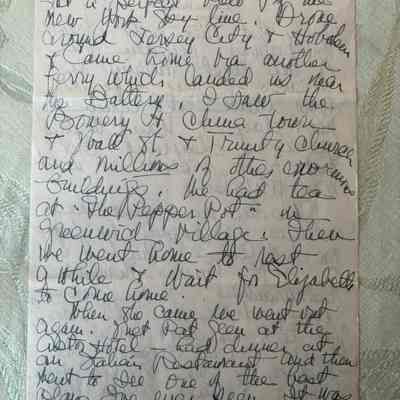 got a perfect view of the
New York Sky line. Drove
around Jersey City & Hoboken
& Came home via another
Ferry which landed us near
the Battery. I saw the
Bowery & China Town
& Wall St. & Trinity Church
and millions of other enormous
buildings. We had tea
at "The Pepper Pot" in
Greenwich Village. Then
we went home to rest
a while & wait for Elizabeth
to come home.
When she came we went out
again. Met Pat Seen at the
Astor Hotel - had dinner at
an Italian Restaurant and then
went to see one of the best
plays I've ever seen. It was